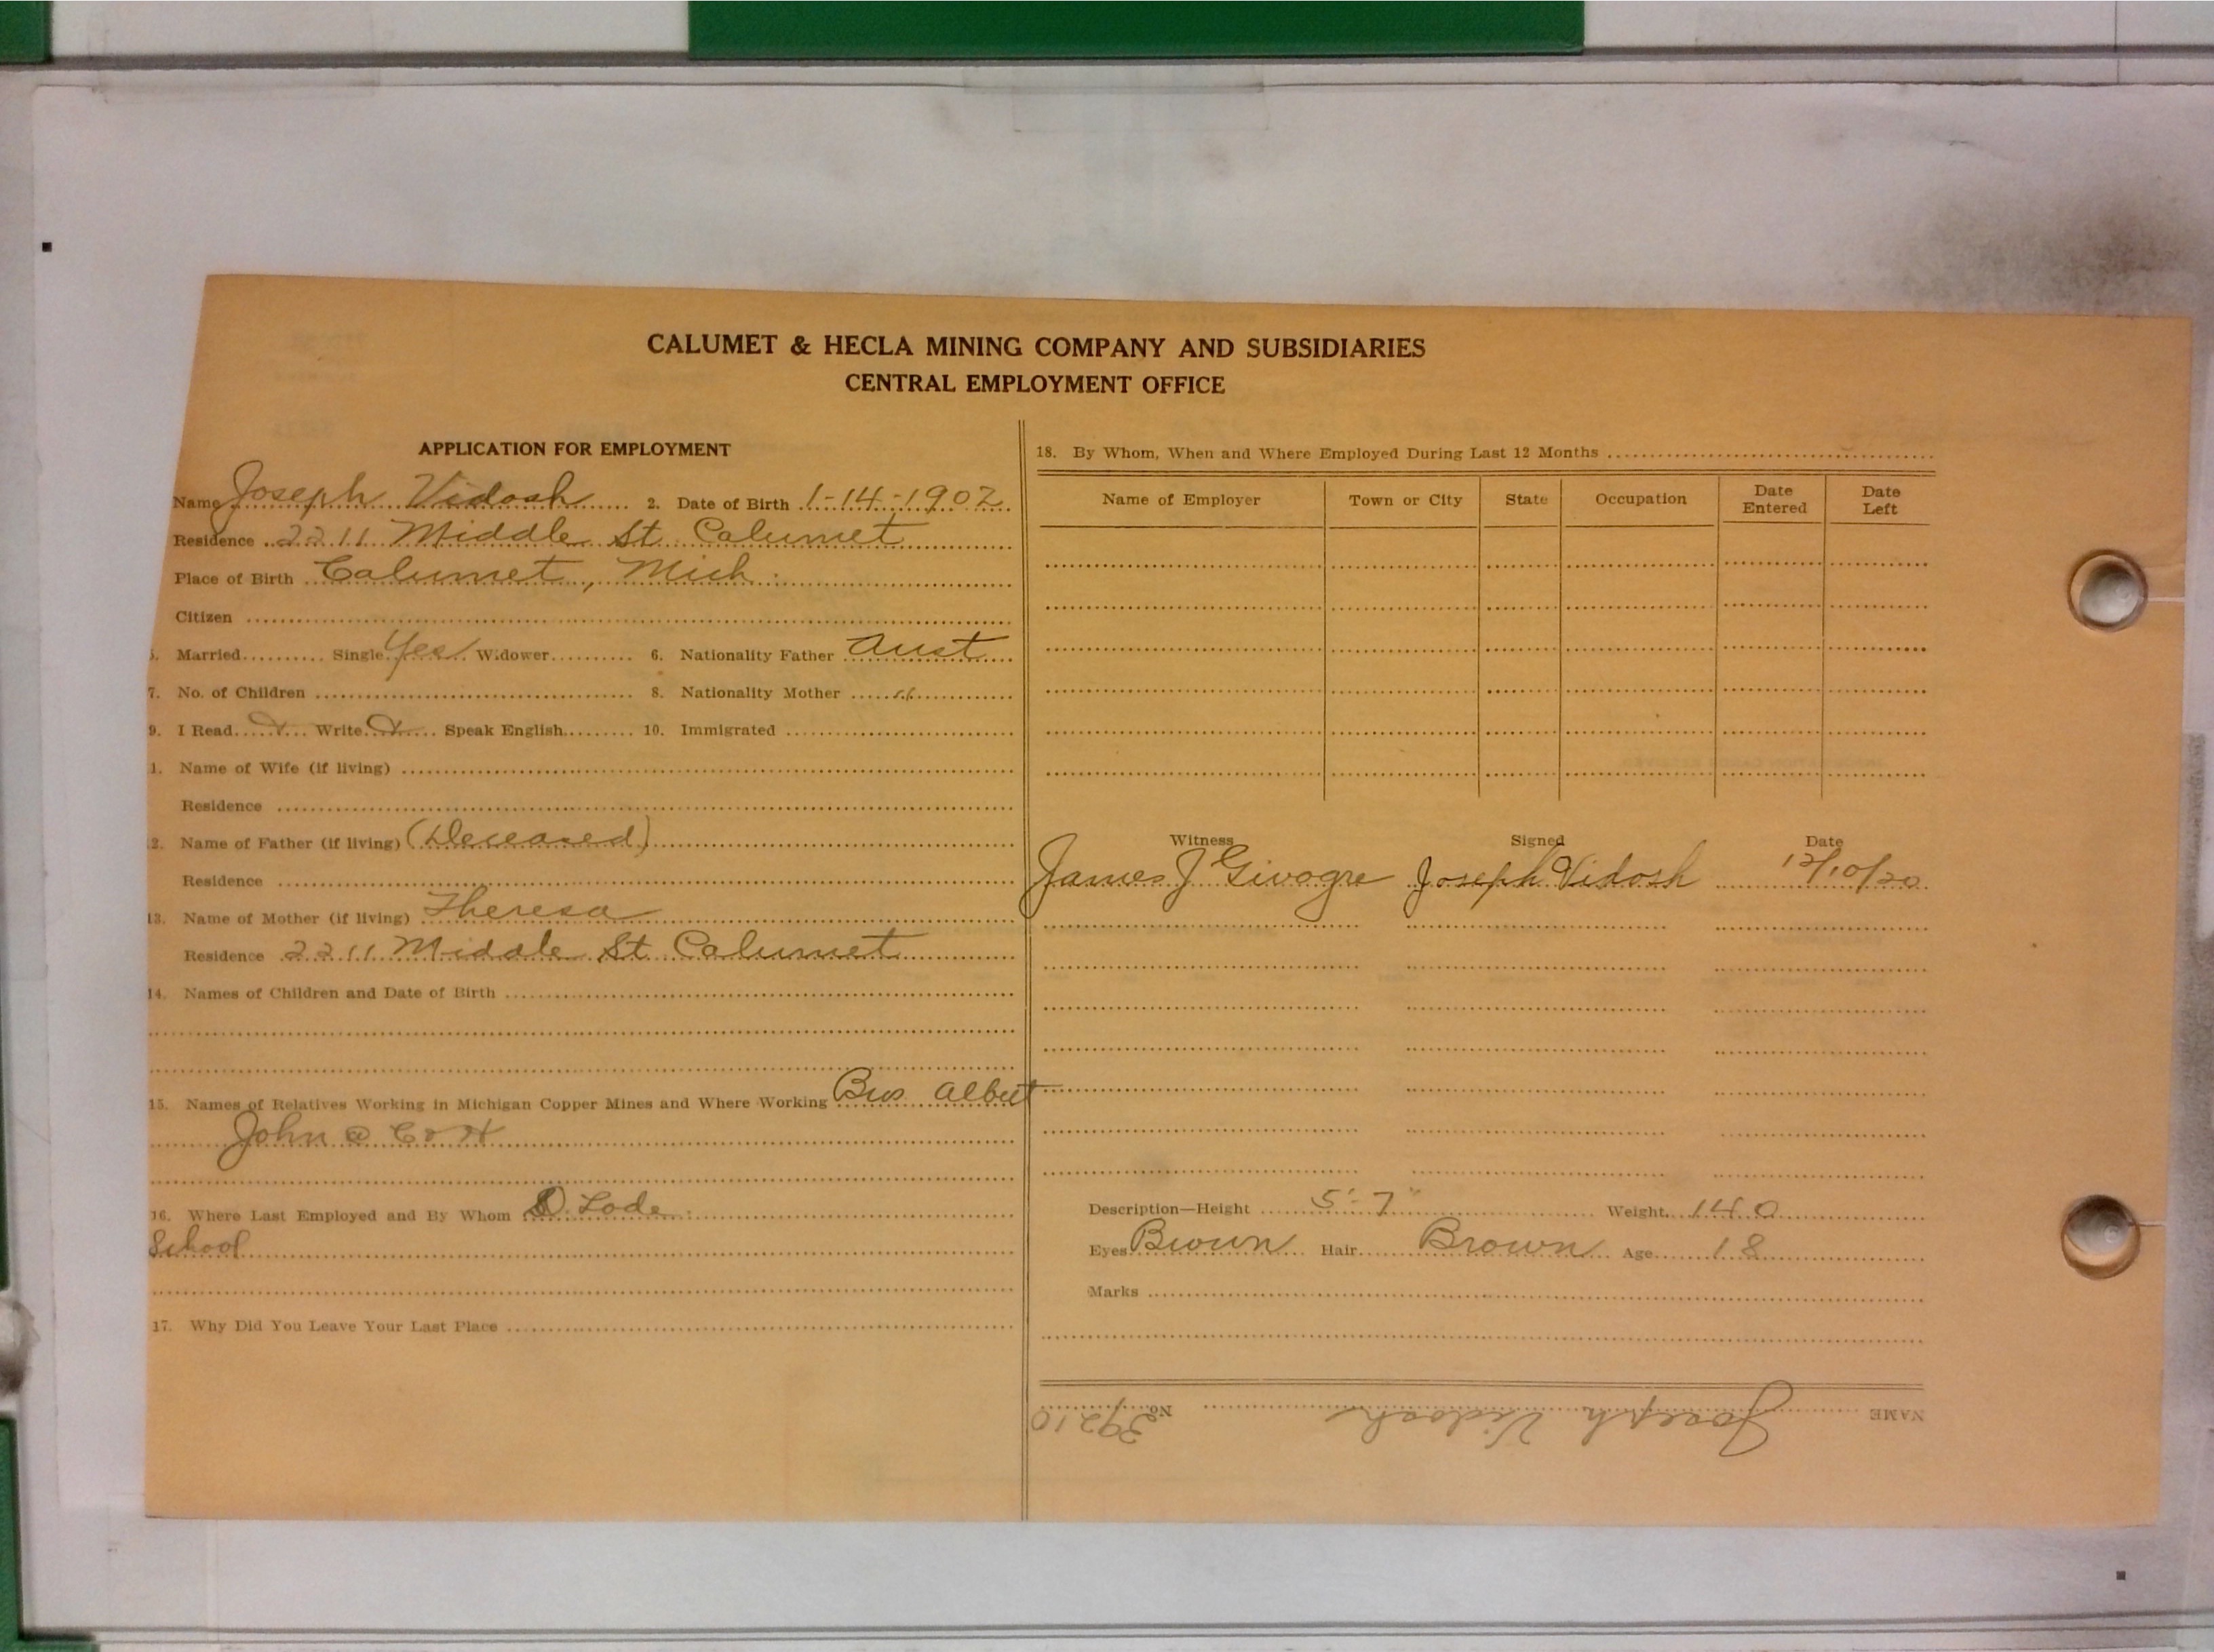 CALUMET & HECLA MINING COMPANY AND SUBSIDIARIES
CENTRAL EMPLOYMENT OFFICE
APPLICATION FOR EMPLOYMENT
Name Joseph Vidosh 2. Date of Birth 1-14-1902
Residence 2211 Middle St Calumet
Place of Birth Calumet, Mich.
Citizen
5. Married Single Yes Widower 6. Nationality Father Aust
7. No. of Children 8. Nationality Mother "
9. I Read Write Speak English 10. Immigrated
1. Name of Wife (if living)
Residence
2. Name of Father (if living) (Deceased)
Residence
13. Name of Mother (if living) Theresa
Residence 2211 Middle St Calumet
14. Names of Children and Date of Birth
15. Names of Relatives Working in Michigan Copper Mines and Where Working Bro Albert
John @ C & H
16. Where Last Employed and By Whom Lode
School
17. Why Did You Leave Your Last Place
18. By Whom, When and Where Employed During Last 12 Months
Name of Employer Town or City State Occupation Date Entered Date Left
Witness Signed Date
James J Joseph Vidosh 12/10/20
Description—Height 5'-7" Weight 140
Eyes Brown Hair Brown Age 18
Marks
NAME Joseph Vidosh No. 39210